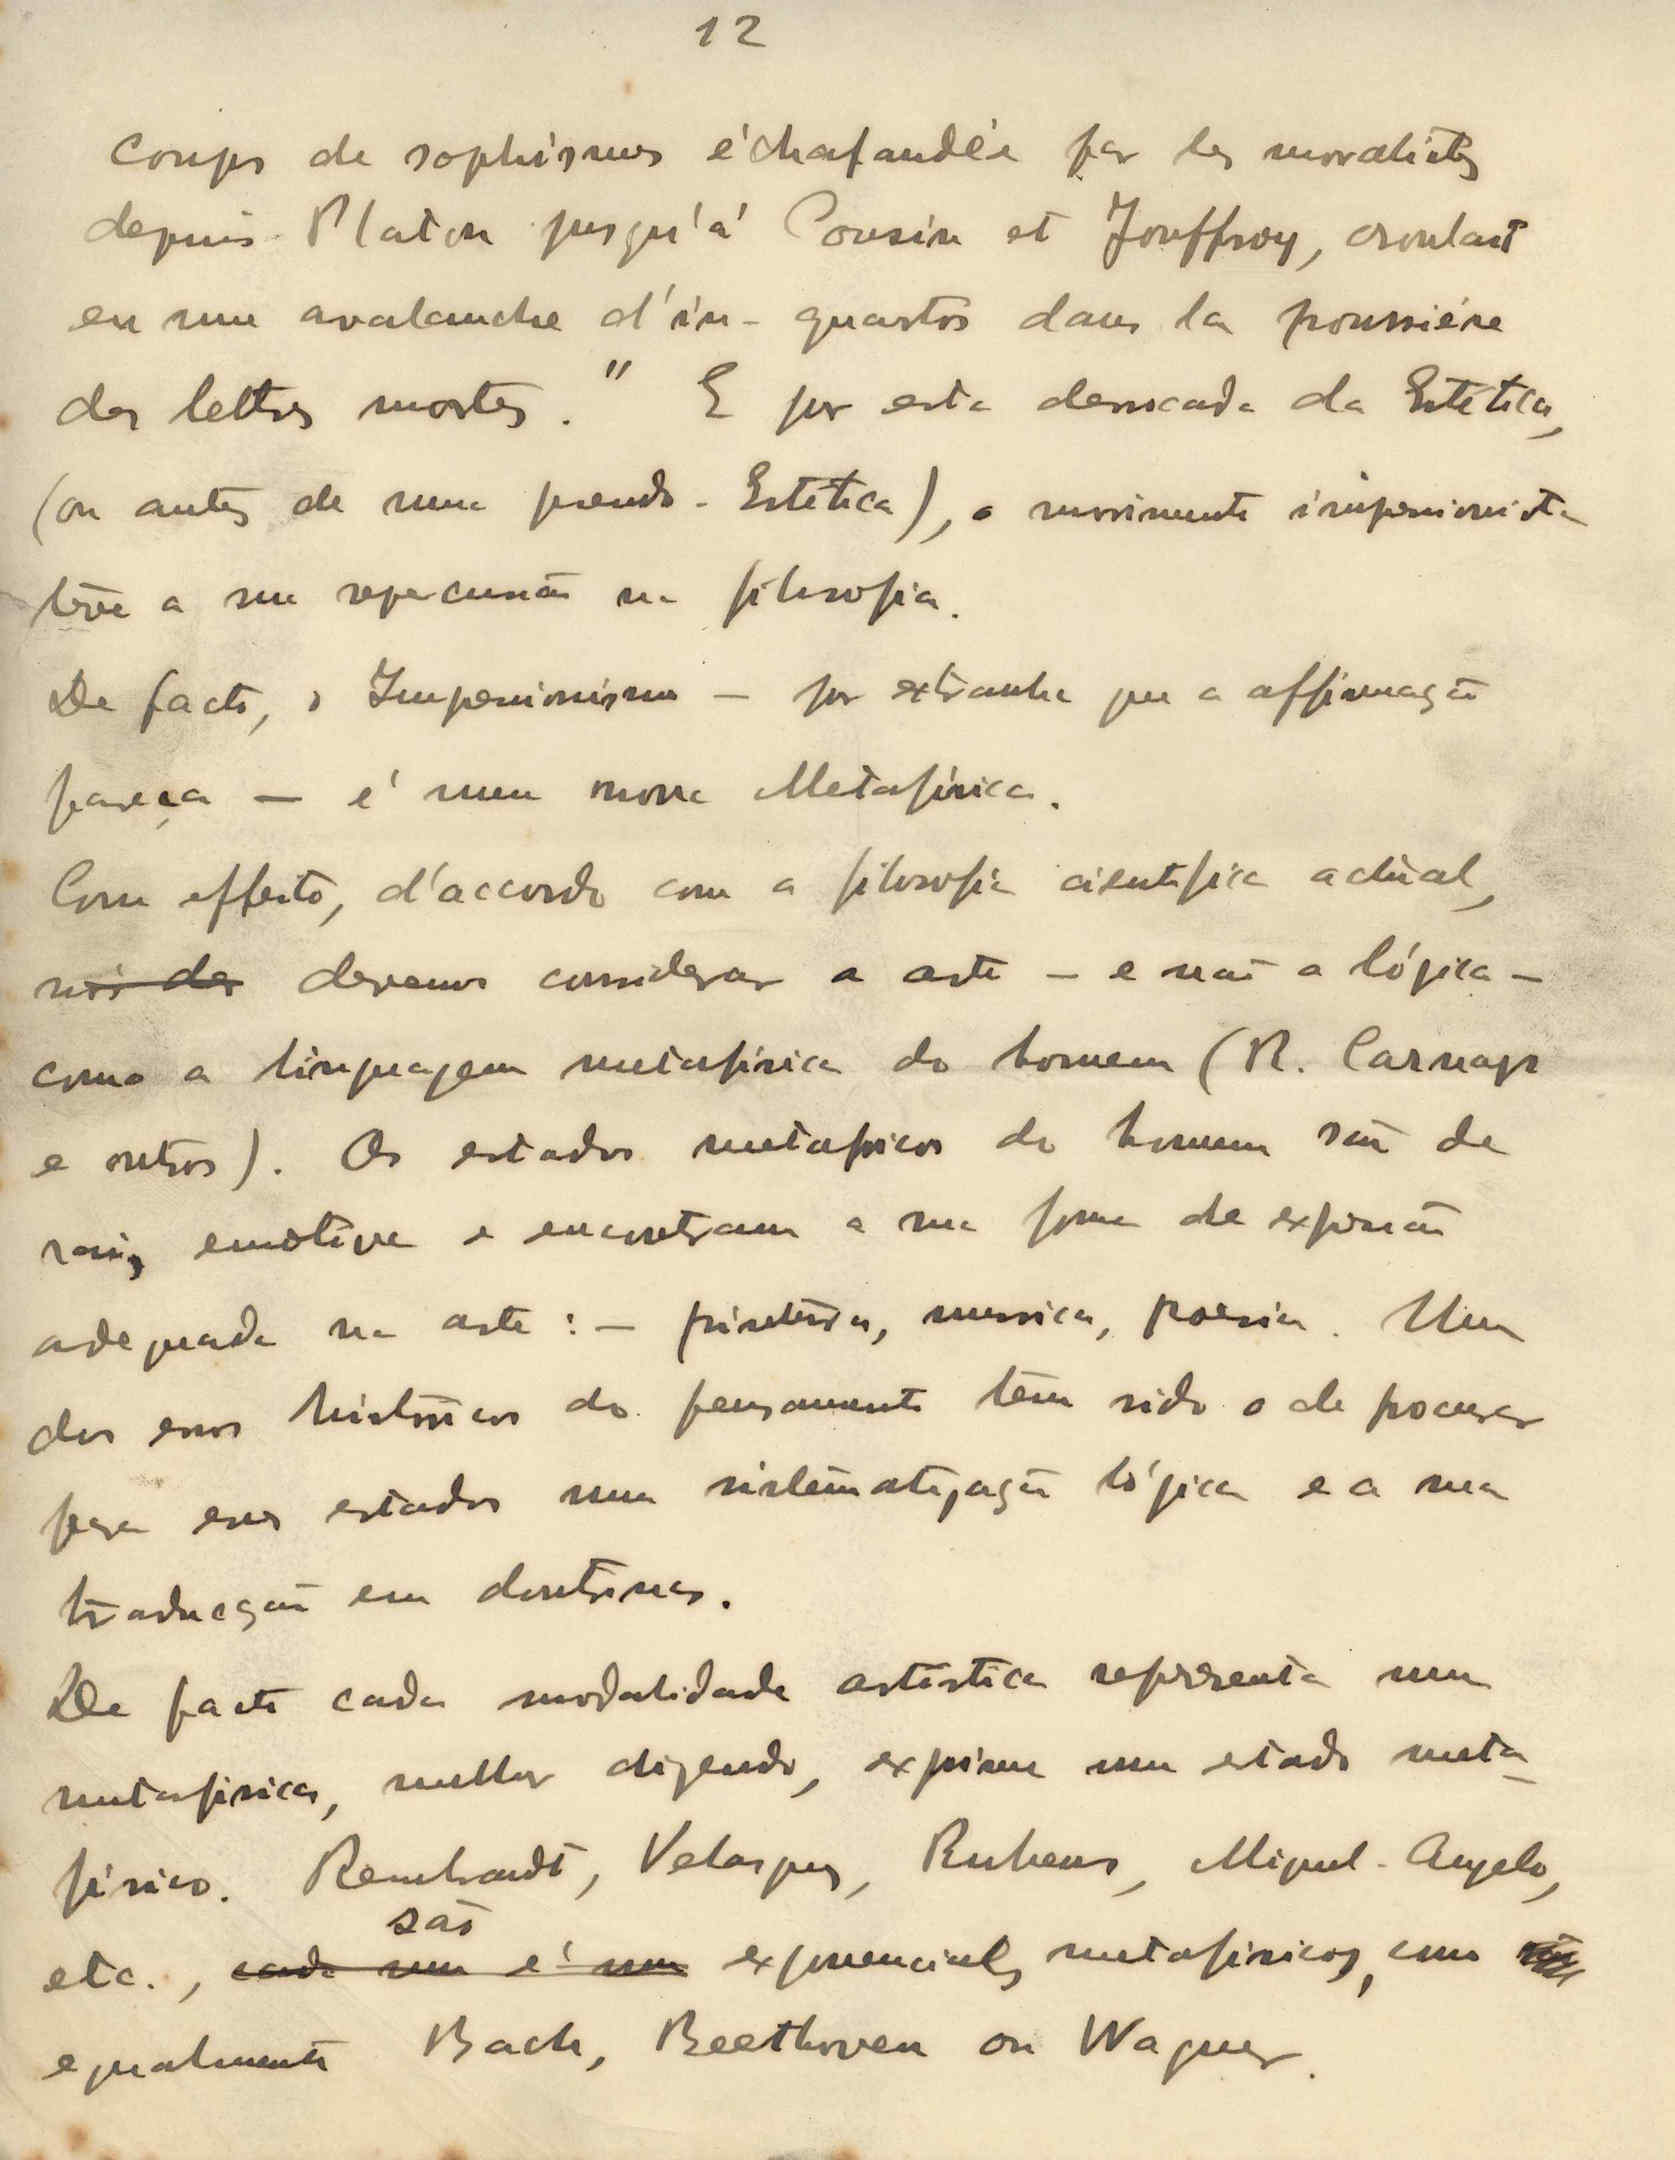 12
coups de sophismes échafaudée par les moralistes
depuis Platon jusqu'á Cousin et Jouffroy, croulait
en une avalanche d'in-quartos dans la poussiére
des lettres mortes." E por esta derrocada da Estética,
(ou antes de uma pseudo-Estética), o movimento impressionista
teve a sua repercussão na filosofia.
De facto, o Impressionismo — por extranha que a affirmação
pareça — é uma nova Metafísica.
Com effeito, d'accordo com a filosofia cientifica actual,
nós de devemos considerar a arte — e não a lógica —
como a linguagem metafísica do homem (R. Carnap
e outros). Os estados metafisicos do homem são de
raiz emotiva e encontram a sua forma de expressão
adequada na arte: — pintura, mussica, poesia. Um
dos erros históricos do pensamento tem sido o de procurar
para esses estados uma sistematização lógica e a sua
traducção em doutrinas.
De facto cada modalidade artistica representa uma
metafisica, melhor dizendo, exprime um estado meta-
físico. Rembrandt, Velasquez, Rubens, Miguel-Angelo,
são
etc., cada um é um exponenciaes metafisicos, como
egualmente Bach, Beethoven ou Wagner.